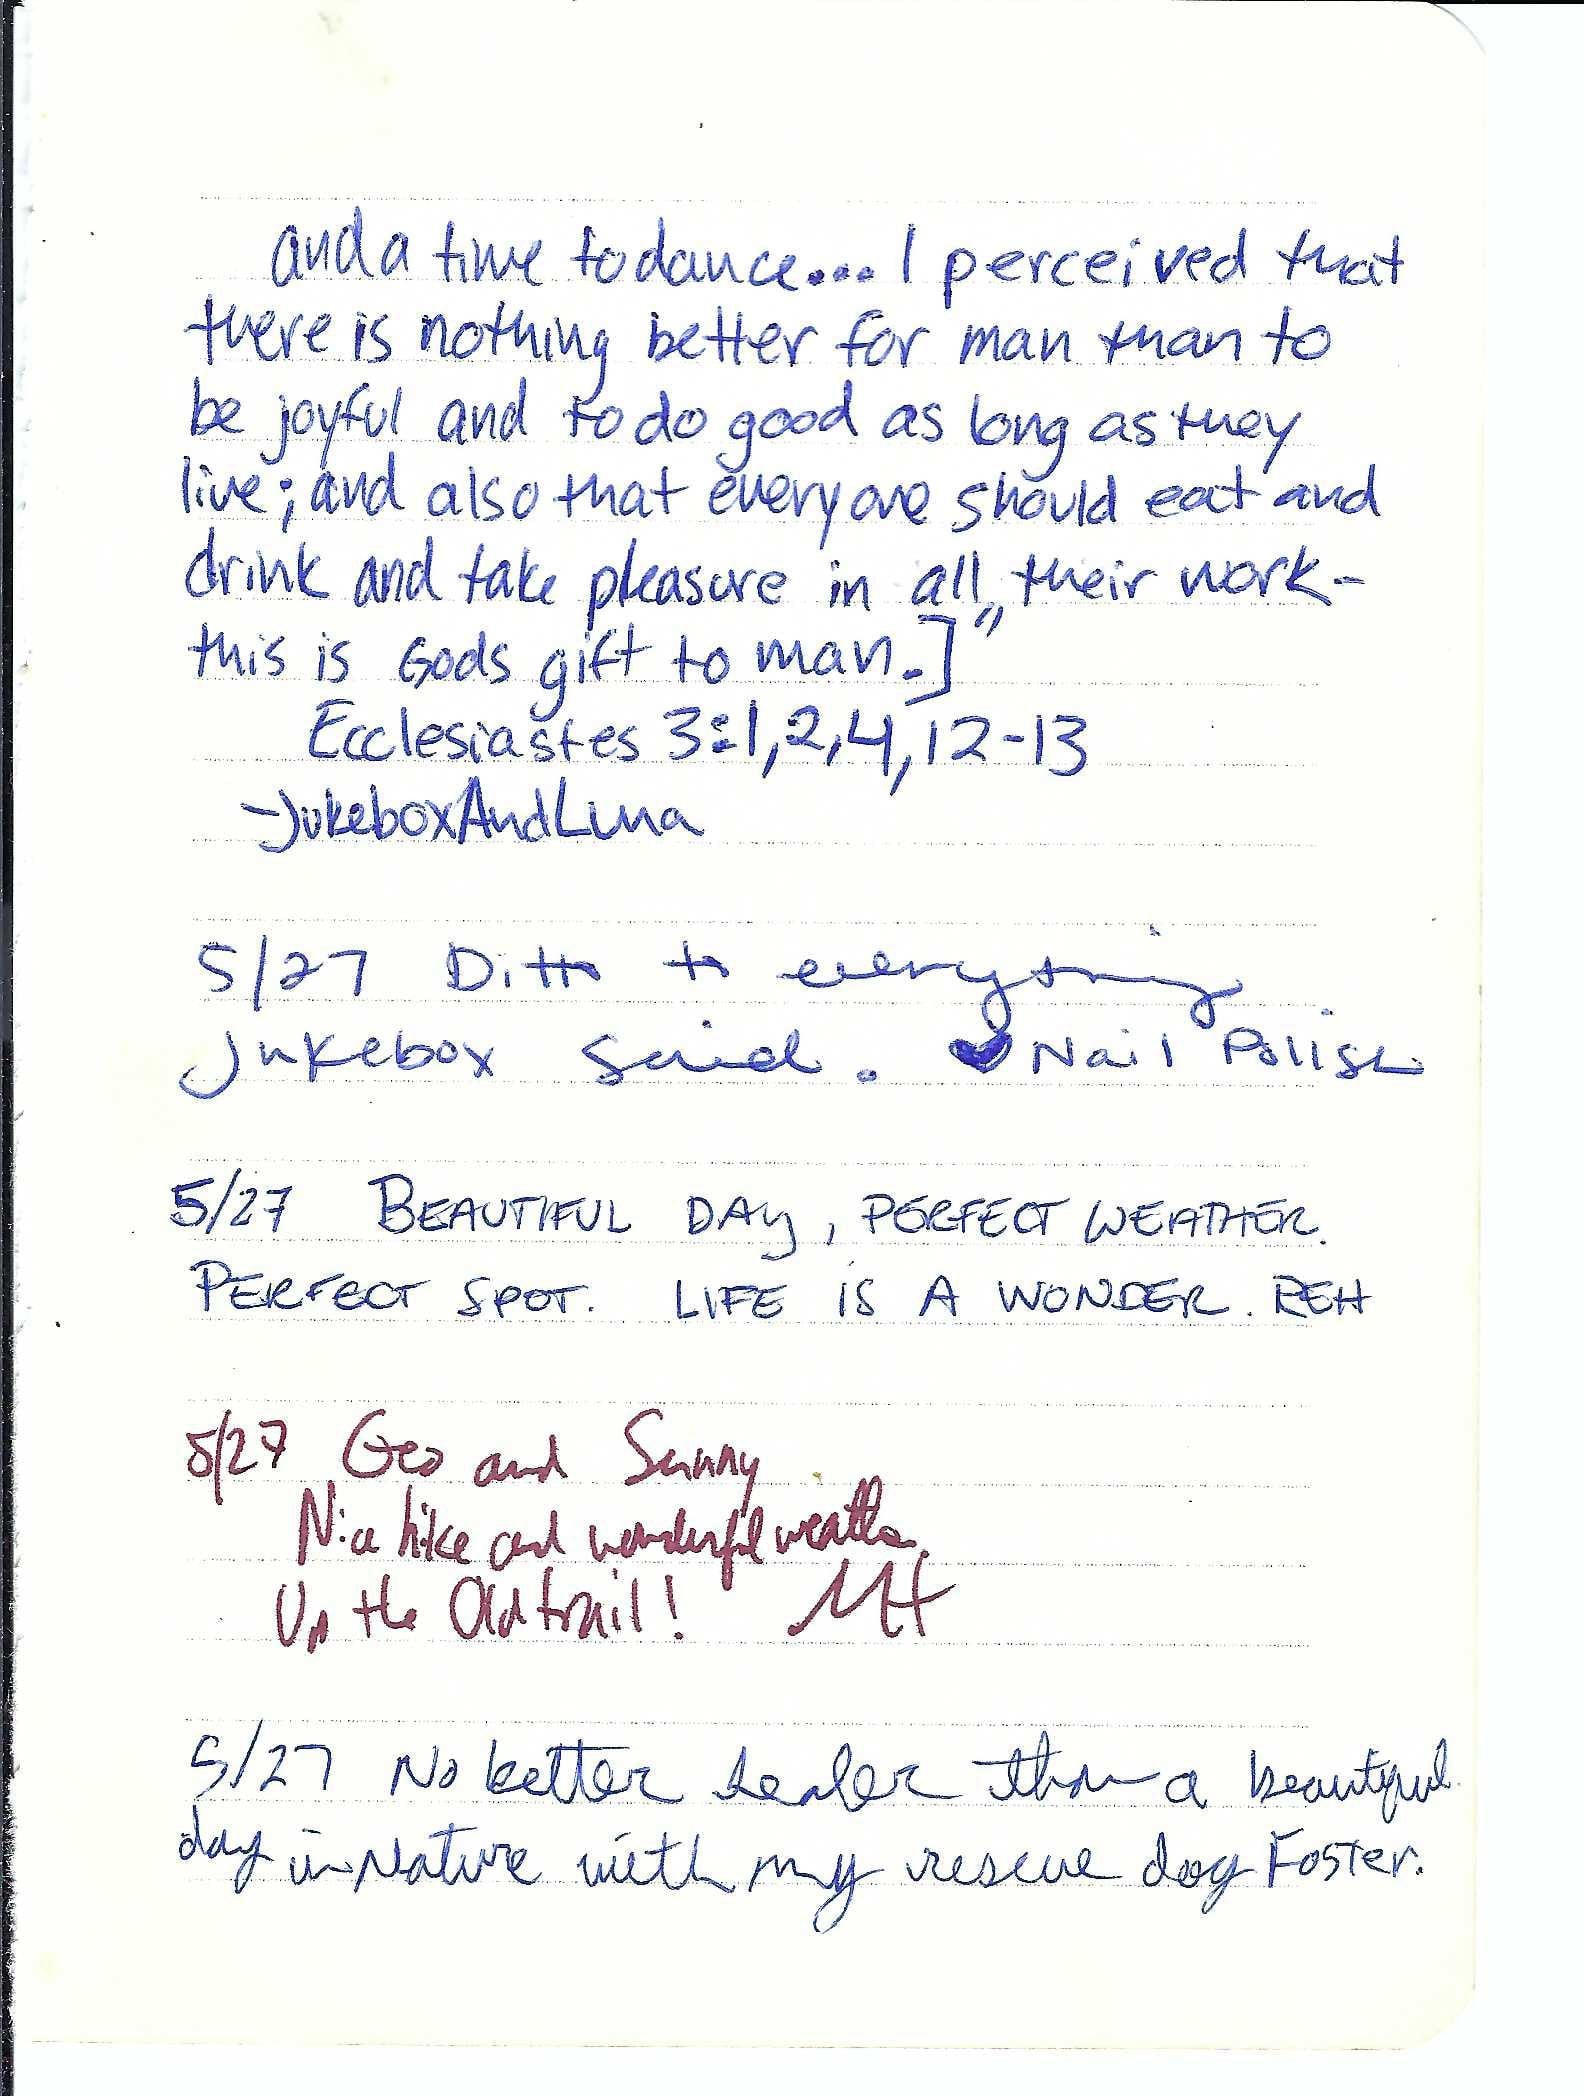 and a time to dance... I perceived that
there is nothing better for man than to
be joyful and to do good as long as they
live; and also that everyone should eat and
drink and take pleasure in all their work-
this is Gods gift to man.]"
Ecclesiastes 3:1,2,4,12-13
-JukeboxAndLuna
5/27 Ditto to everything
Jukebox said. ♥ Nail Polish
5/27 BEAUTIFUL DAY, PERFECT WEATHER.
PERFECT SPOT. LIFE IS A WONDER. REH
5/27 Geo and Sunny
Nice hike and wonderful weather
Up the Old trail! MH
5/27 No better healer than a beautiful
day in Nature with my rescue dog Foster.